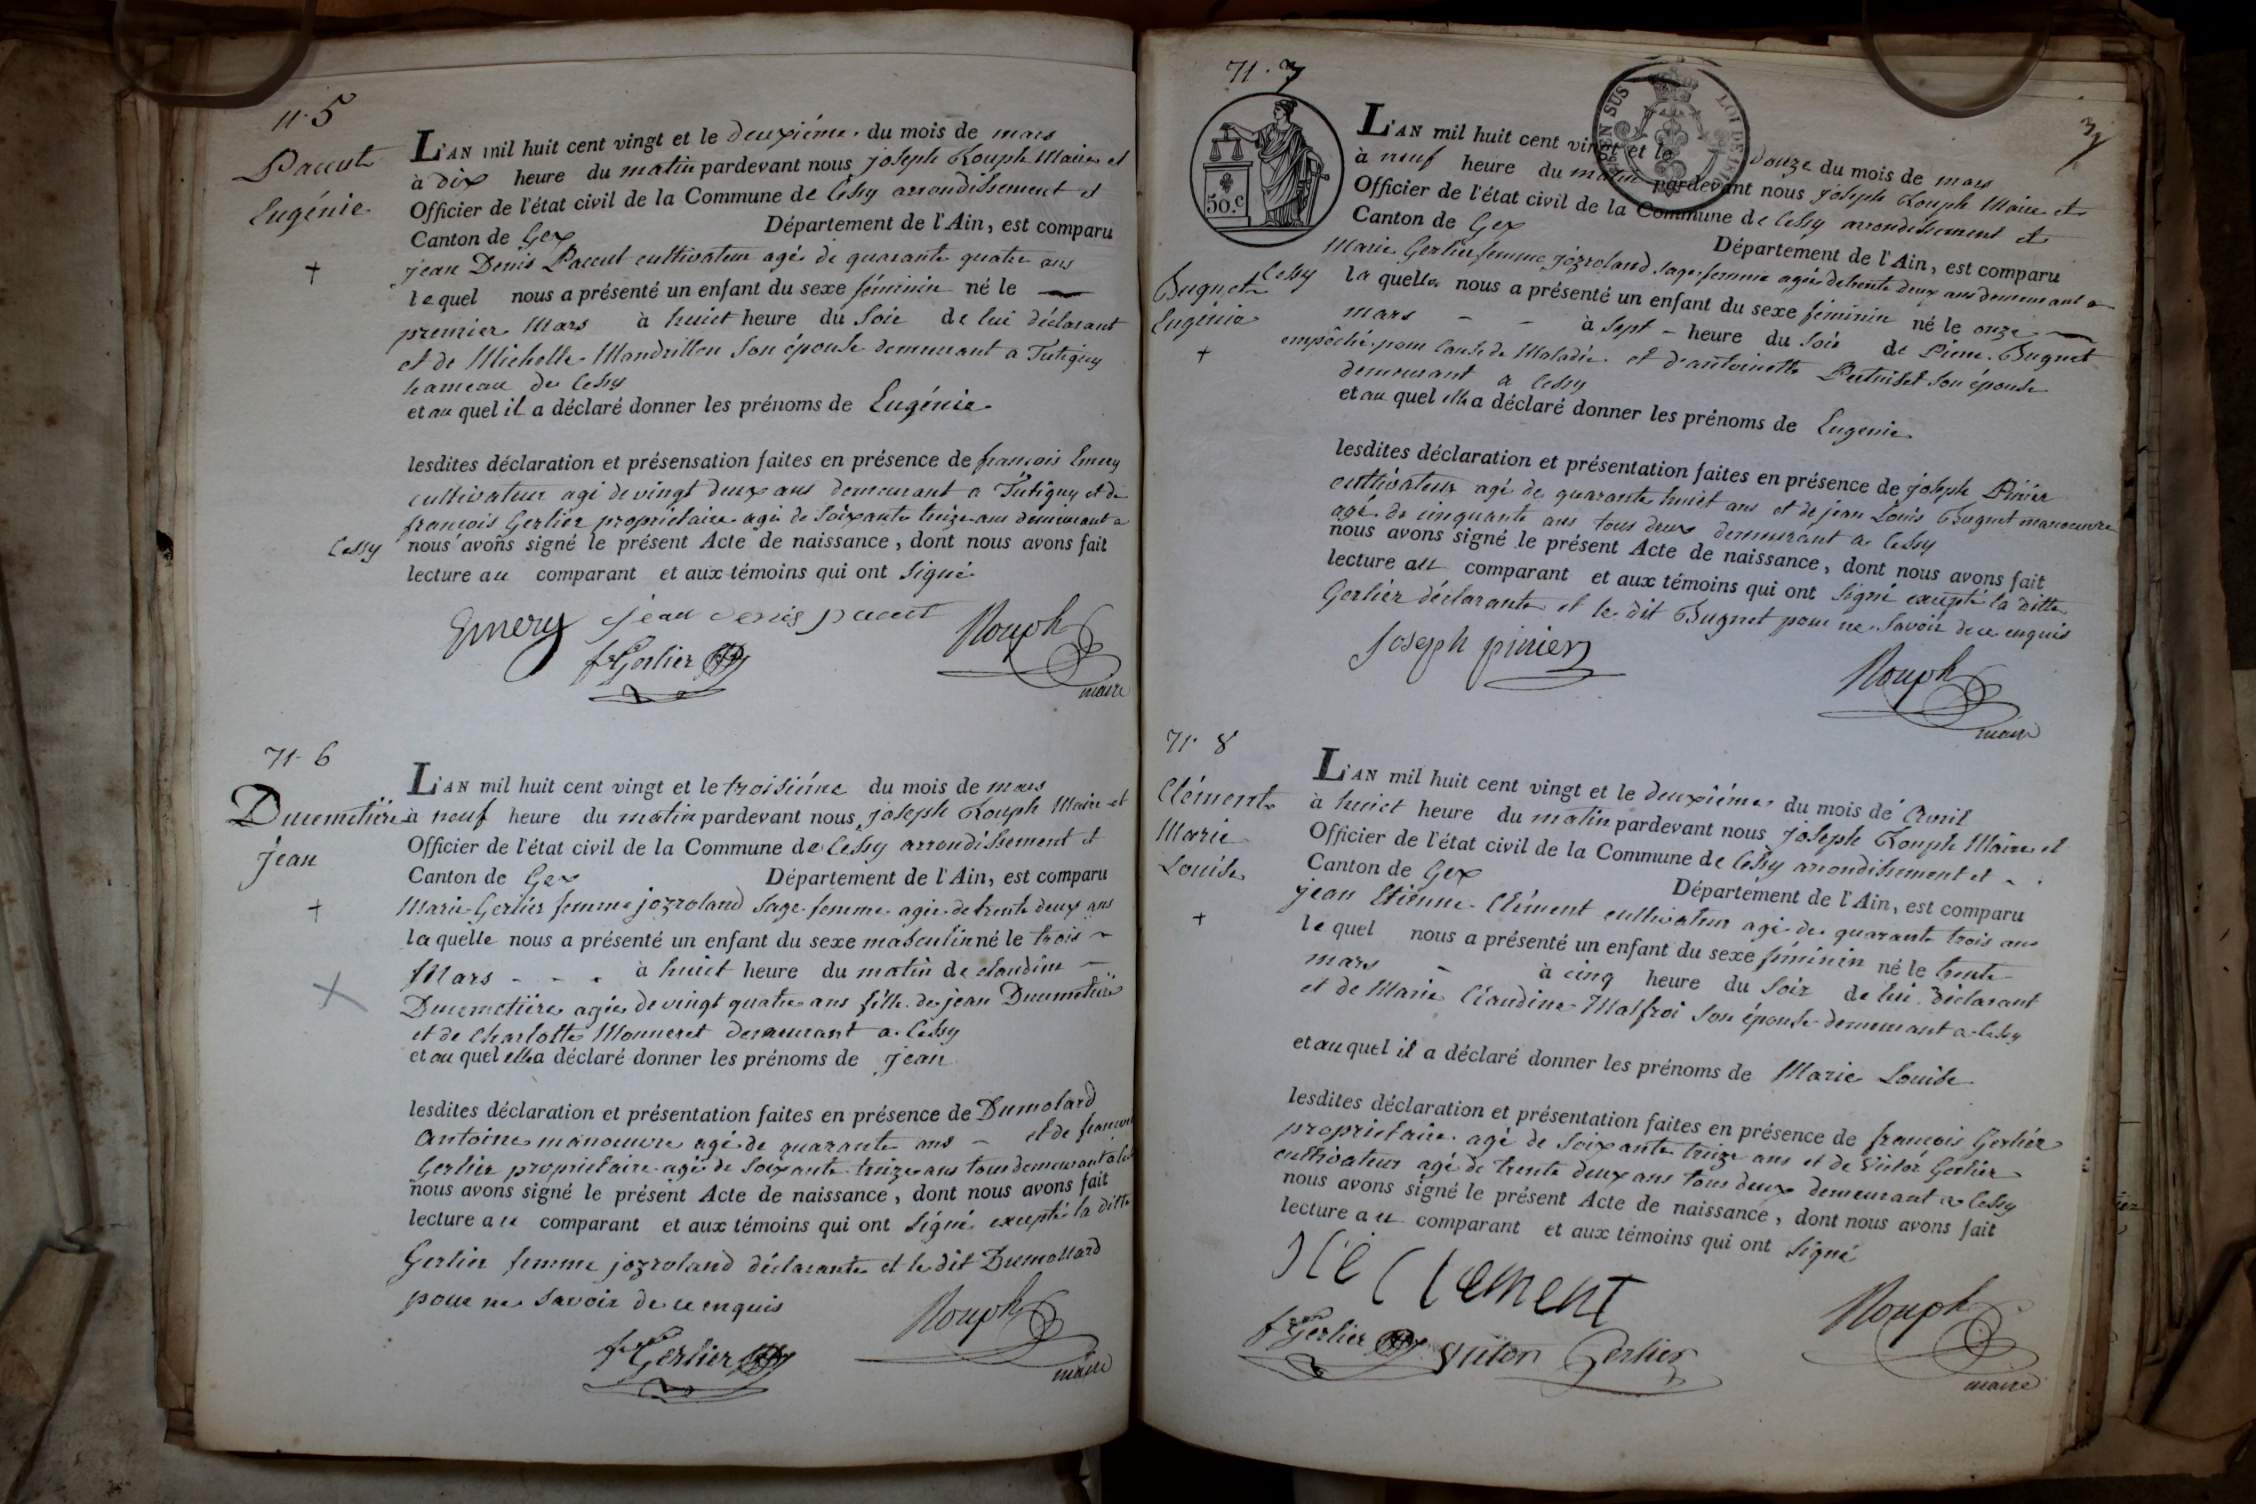 n. 5
Paccut
Eugénie
L'AN mil huit cent vingt et le deuxiéme du mois de mars
à dix heure du matin pardevant nous joseph Rouph Maire et
Officier de l'état civil de la Commune de Cessy arrondissement et
Canton de Gex Département de l'Ain, est comparu
jean Denis Paccut cultivateur agé de quarante quatre ans
lequel nous a présenté un enfant du sexe féminin né le
premier Mars à huict heure du Soir de lui déclarant
et de Michelle Mandrillon Son épouse demeurant a Tutigny
hameau de Cessy
et au quel il a déclaré donner les prénoms de Eugénie
lesdites déclaration et présensation faites en présence de françois Emery
cultivateur agé de vingt deux ans demeurant a Tutigny et de
francois Gerlier propriétaire agé de Soixante treize ans demeurant a
Cessy nous avons signé le présent Acte de naissance, dont nous avons fait
lecture au comparant et aux témoins qui ont Signé
Emery jean denis paccut Rouph
fois Gerlier maire
n. 6
Ducimetiére
jean
L'AN mil huit cent vingt et le troisiéme du mois de mars
à neuf heure du matin pardevant nous joseph Rouph Maire et
Officier de l'état civil de la Commune de Cessy arrondissement et
Canton de Gex Département de l'Ain, est comparu
Marie Gerlier femme jozroland Sage-femme agée de trente deux ans
laquelle nous a présenté un enfant du sexe masculin né le trois
Mars à huict heure du matin de claudine
Ducimetiére agée de vingt quatre ans fille de jean Ducimetiére
et de Charlotte Monneret demeurant a Cessy
et au quel elle a déclaré donner les prénoms de jean
lesdites déclaration et présentation faites en présence de Dumolard
Antoine manoeuvre agé de quarante ans et de francois
Gerlier propriétaire agé de Soixante treize ans tous demeurant a
nous avons signé le présent Acte de naissance, dont nous avons fait
lecture au comparant et aux témoins qui ont Signé excepté la ditte
Gerlier femme jozroland déclarante et le dit Dumollard
pour ne Savoir de ce enquis
Rouph
fois Gerlier maire
n. 7
3
EN SUS
LOI DE
50.c
L'AN mil huit cent vingt et le douze du mois de mars
à neuf heure du matin pardevant nous joseph Rouph Maire et
Officier de l'état civil de la Commune de Cessy arrondissement et
Canton de Gex Département de l'Ain, est comparu
Marie Gerlier femme jozroland Sage-femme agée de trente deux ans demeurant a
Bugnet
Eugénie
Cessy laquelle nous a présenté un enfant du sexe féminin né le onze
mars à Sept heure du Soir de Pierre Bugnet
empêché pour cause de Maladie et d'antoinette Pertuiset son épouse
demeurant a Cessy
et au quel elle a déclaré donner les prénoms de Eugenie
lesdites déclaration et présentation faites en présence de joseph Pinier
cultivateur agé de quarante huict ans et de jean Louis Bugnet manoeuvre
agé de cinquante ans tous deux demeurant a Cessy
nous avons signé le présent Acte de naissance, dont nous avons fait
lecture au comparant et aux témoins qui ont Signé excepté la ditte
Gerlier déclarante et le dit Bugnet pour ne Savoir de ce enquis
Joseph pinier
Rouph
maire
n. 8
Clément
Marie
Louise
L'AN mil huit cent vingt et le deuxiéme du mois de Avril
à huict heure du matin pardevant nous joseph Rouph Maire et
Officier de l'état civil de la Commune de Cessy arrondissement et
Canton de Gex Département de l'Ain, est comparu
jean Etienne Clément cultivateur agé de quarante trois ans
lequel nous a présenté un enfant du sexe féminin né le trente
mars à cinq heure du Soir de lui déclarant
et de Marie Claudine Malfroi Son épouse demeurant a Cessy
et au quel il a déclaré donner les prénoms de Marie Louise
lesdites déclaration et présentation faites en présence de francois Gerlier
propriétaire agé de Soixante treize ans et de Victor Gerlier
cultivateur agé de trente deux ans tous deux demeurant a Cessy
nous avons signé le présent Acte de naissance, dont nous avons fait
lecture au comparant et aux témoins qui ont Signé
Clement
Rouph
fois Gerlier Victor Gerlier
maire